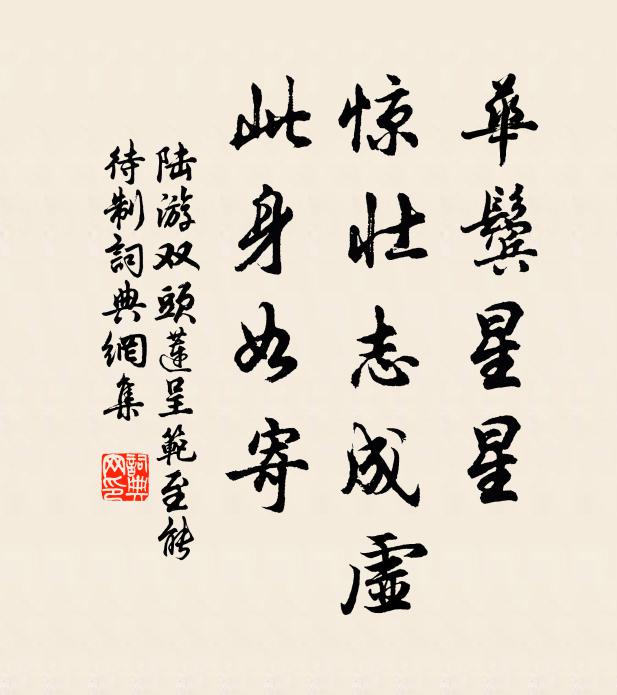 華鬢星星
惊壮志成虛
此身如寄
陆游双頭蓮呈範至能
待制詞典網集
詞典
网印